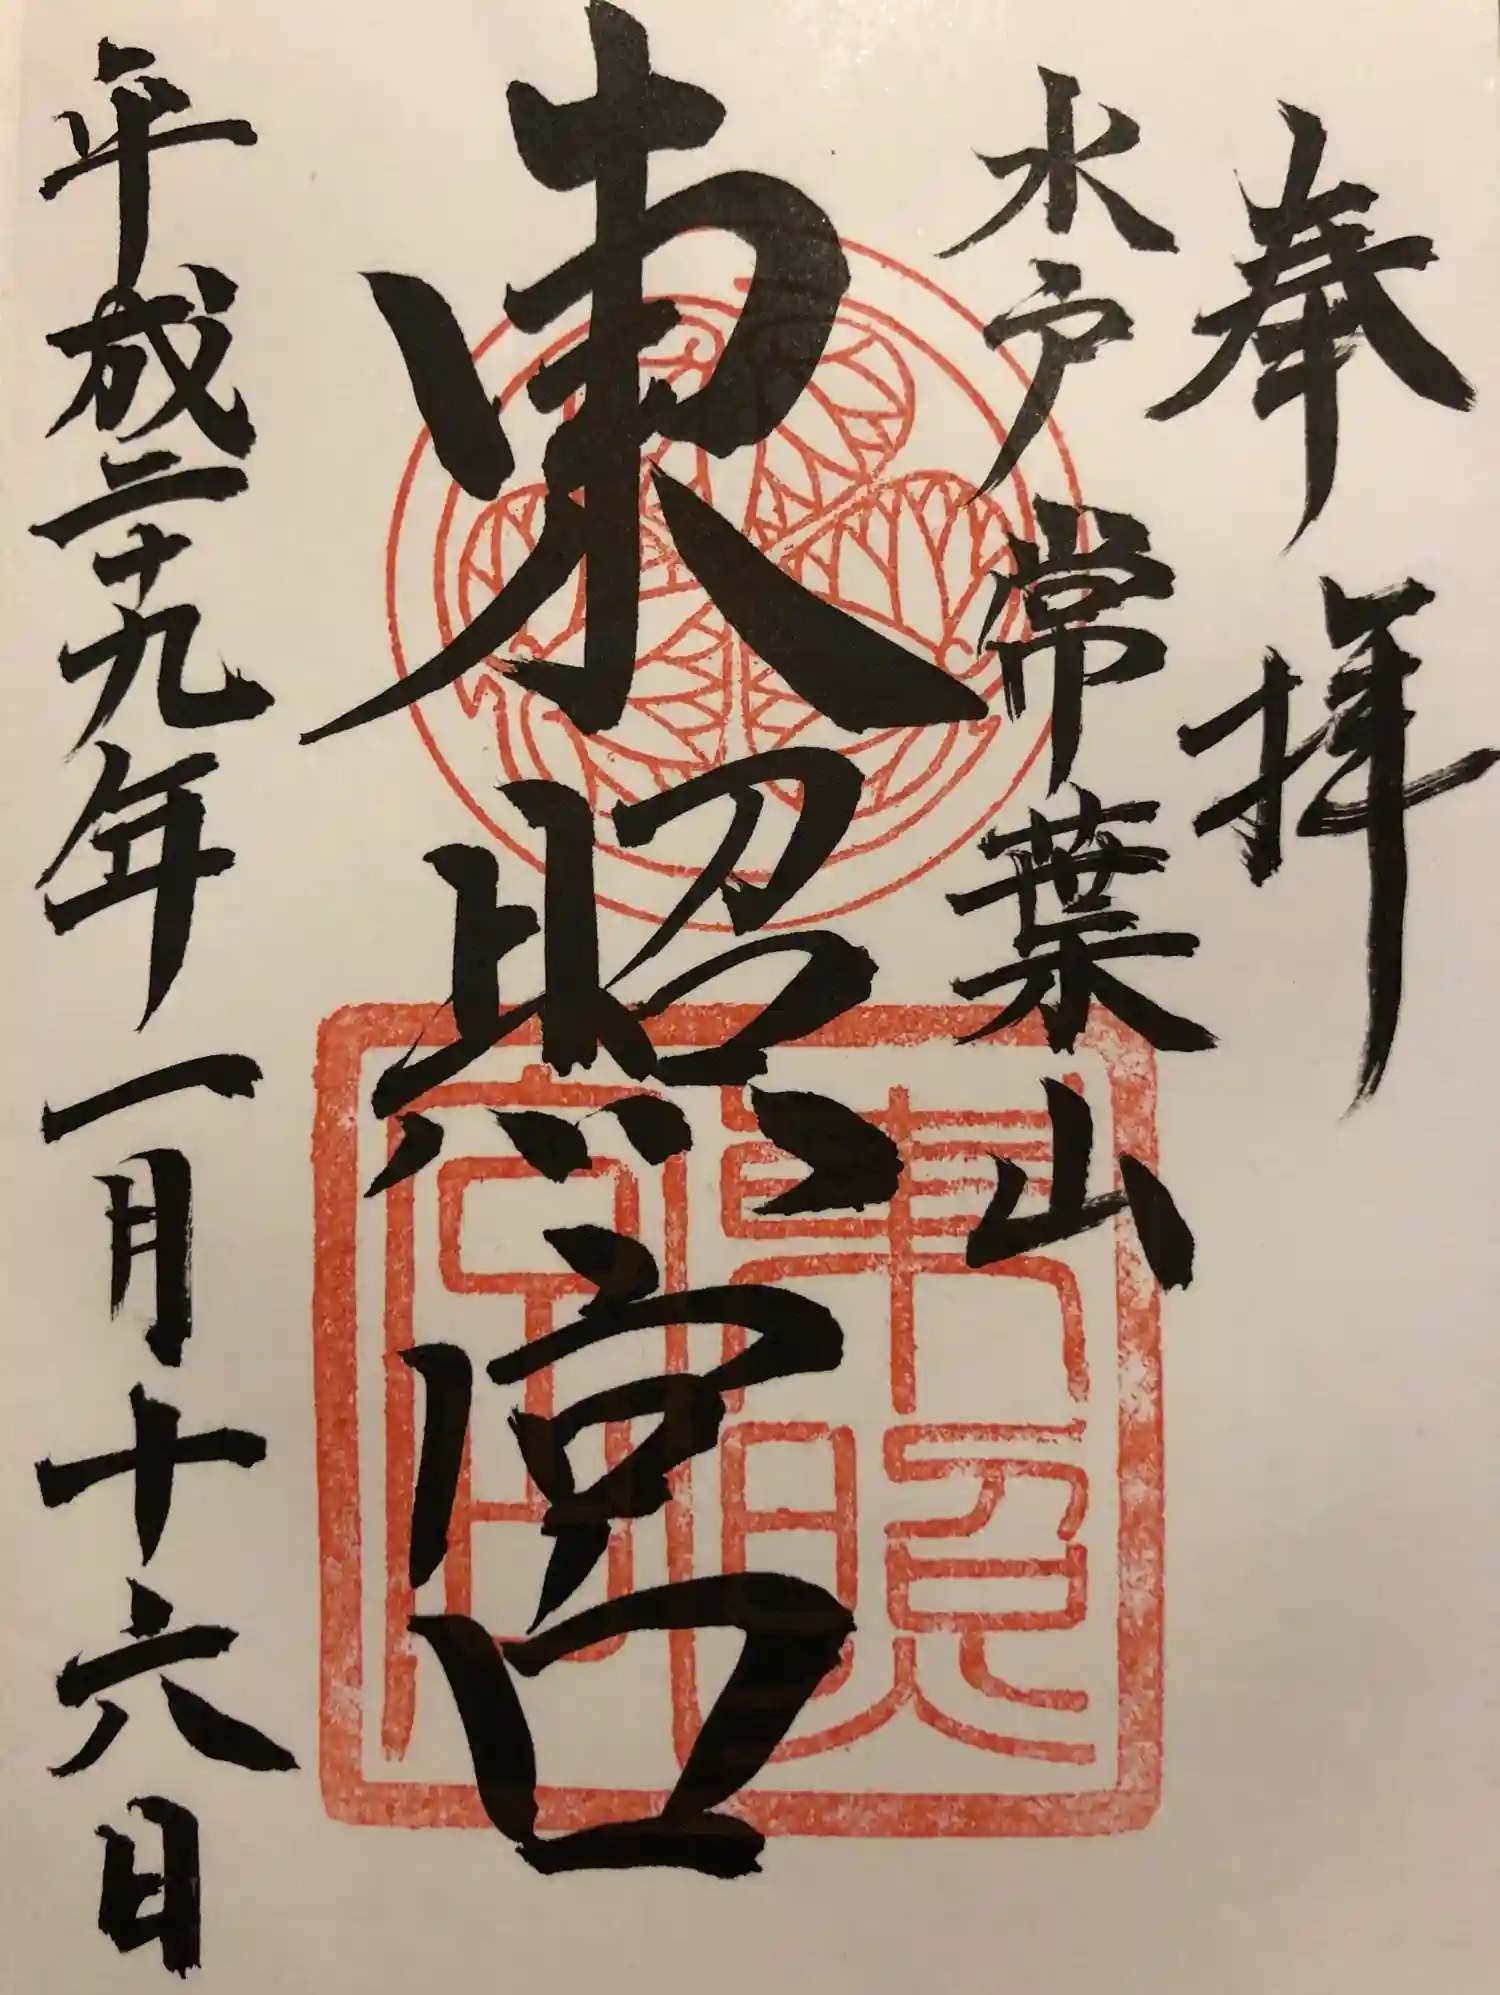 奉拝
水戸常葉山
東照宮
東照宮
平成二十九年一月十六日